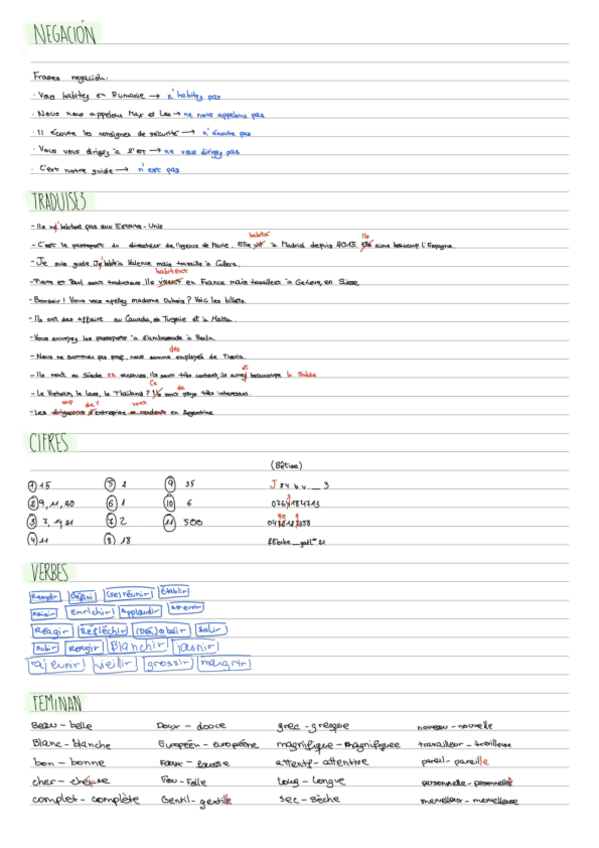 NEGACIÓN
Frases negación.
· Vous habitez en Rumanie → n'habitez pas
· Nous nous appelons Max et Lea → ne nous appelons pas
· Il écoute les consignes de sécurité → n'écoute pas
· Vous vous dirigez à l'est → ne vous dirigez pas
· C'est notre guide → n'est pas
TRADUISES
- Ils n'habitent pas aux Estana-Unis
habite Ils
- C'est le passeport du directeur de l'agence de Marie. Elle vit à Madrid depuis 2015. Elle aime beaucoup l'Espagne.
- Je suis guide Je habite Valence mais travaille à Cullera.
habitent
- Pierre et Paul sont traducteurs. Ils vivent en France mais travaillent à Genève, en Suisse
- Bonsoir! Vous vous appelez madame Dubois? Voici les billets.
- Ils ont des affaire au Canada, en Turquie et à Malta.
- Vous envoyez les passeports à l'ambassade à Berlin
des
- Nous ne sommes pas prof, nous sommes employés de
et
- Ils vont en Suède en vacances. Ils sont très content, ils aiment beaucoupe la Suède
Ce de
- Le Vietnam, le Laos, la Thaïland? Ils sont pays très interessant.
de? vont
- Les d'entreprise se rendent en Argentine
CIFRES
(Bêtise)
① 15 ⑤ 2 ⑨ 35 J 84 b v __ 3
② 9, 11, 20 ⑥ 1 ⑩ 6
③ 7, 19, 21 ⑦ 2 ⑪ 500
④ 11 ⑧ 18
VERBES
Remplir Définir (se) réunir Établir
Saisir Enrichir Applaudir
Réagir Réfléchir (Dés)obéir Salir
Subir Rougir Blanchir jaunir
rajeunir vieillir grossir maigrir
FEMINAN
Beau - belle Doux - douce grec - grecque nouveau - nouvelle
Blanc - blanche Européen - européene magnifique - magnifiquee travailleur - travilleuse
bon - bonne Faux - fausse attentif - attentive pareil - pareille
cher - chère Fou - Folle Long - Longue personnelle - personnelle
complet - complète Gentil - gentille sec - sèche merveilleux - merveilleuse